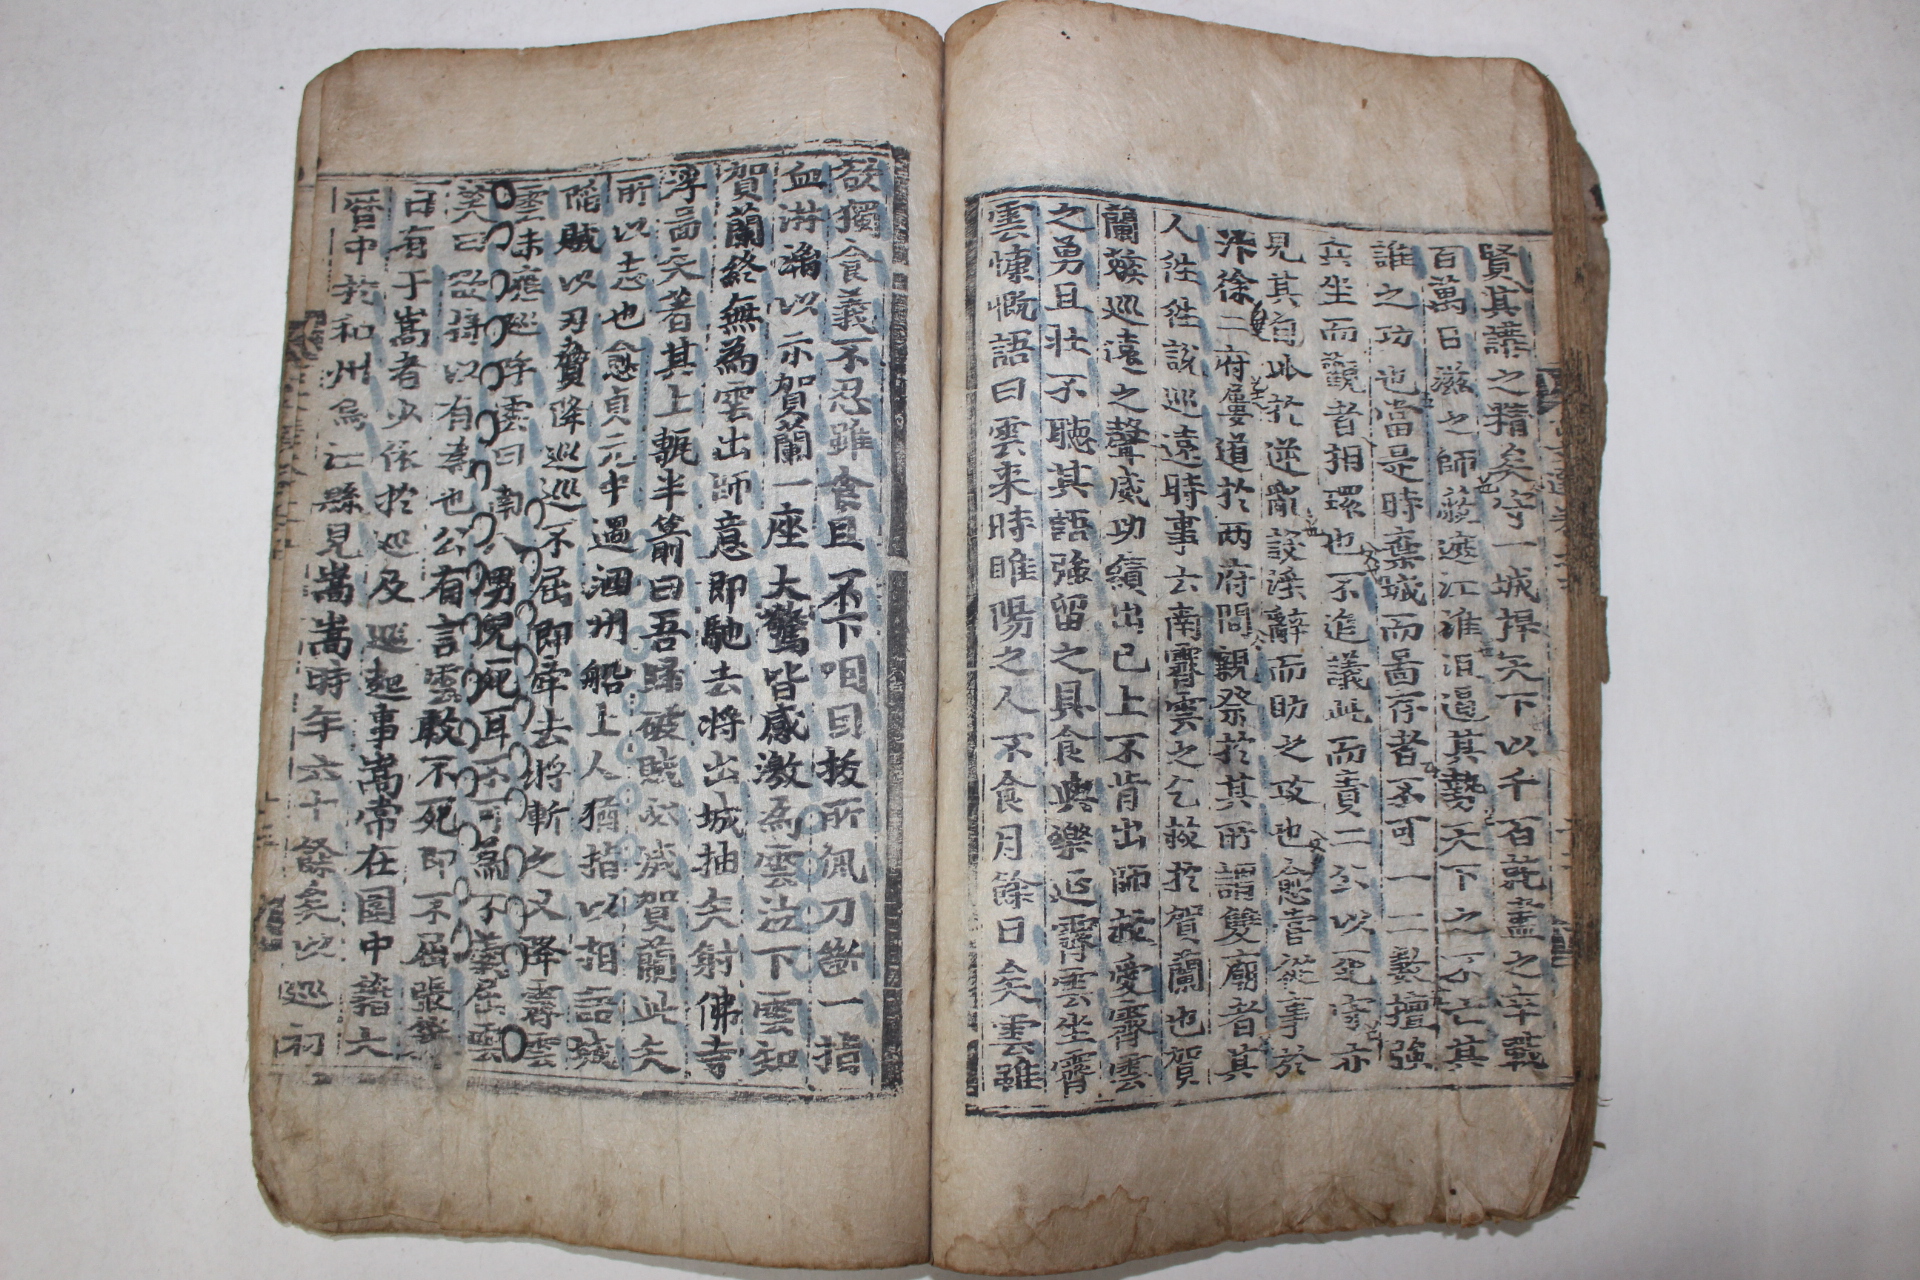 賢其講之精矣守一城捍天下以千百就盡之卒戰
百萬日滋之師蔽遮江淮沮遏其勢天下之不亡其
誰之功也當是時棄城而啚存者不可一二數擅強
兵坐而觀者相環也不追議此而責二公以死守亦
見其自比於逆亂設淫辭而助之攻也愈嘗從事於
汴徐二府屢道於两府間親祭於其所謂雙廟者其
人徃徃說巡遠時事云南霽雲之乞救於賀蘭也賀
蘭嫉巡遠之聲威功績出己上不肯出師救愛霽雲
之勇且壮不聽其語強留之具食與樂延霽雲坐霽
雲慷慨語曰雲来時睢陽之人不食月餘日矣雲雖
欲獨食義不忍雖食且不下咽因拔所佩刀斷一指
血淋漓以示賀蘭一座大驚皆感激為雲泣下雲知
賀蘭終無為雲出師意即馳去将出城抽矢射佛寺
浮啚矢著其上甎半箭曰吾歸破賊必滅賀蘭此矢
所以志也愈貞元中過泗州船上人猶指以相語城
陷賊以刃脅降巡巡不屈即牽去將斬之又降霽雲
雲未應巡呼雲曰南八男児死耳不可為不義屈雲
笑曰欲將以有為也公有言雲敢不死即不屈張籍
曰有于嵩者少依於巡及巡起事嵩常在圍中籍大
曆中於和州烏江縣見嵩嵩時年六十餘矣以巡初